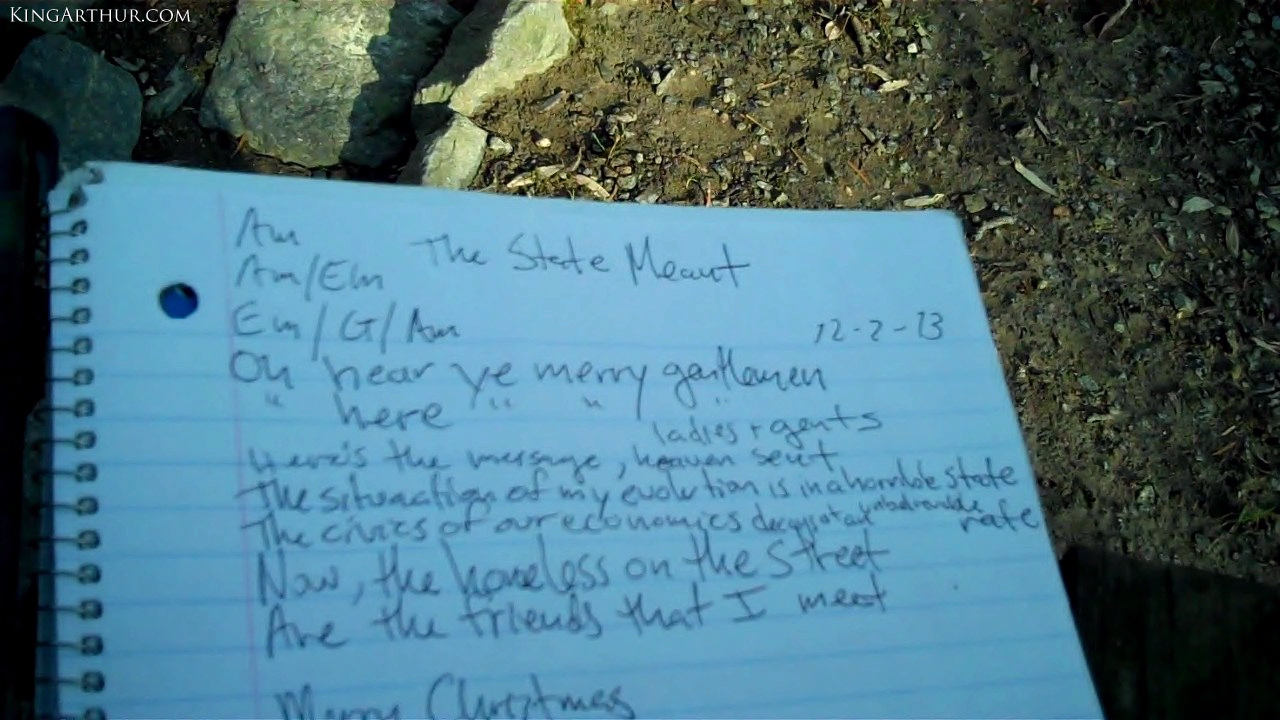 KingArthur.com
Am
Am/Em The State Meant
Em/G/Am 12-2-13
Oh hear ye merry gentlemen
" here " " "
ladies + gents
Here's the message, heaven sent
The situation of my evolution is in a horrible state
The civics of our economics decay at an unbelievable rate
Now, the homeless on the street
Are the friends that I meet
Merry Christmas